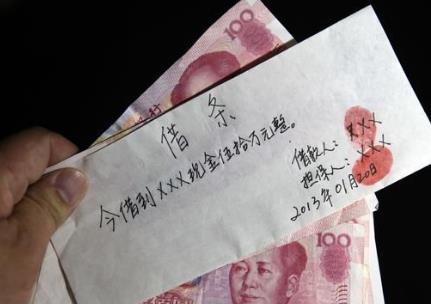 100
借条
今借到XXX现金伍拾万元整。
借款人：XXX
担保人：XXX
2013年01月20日
100